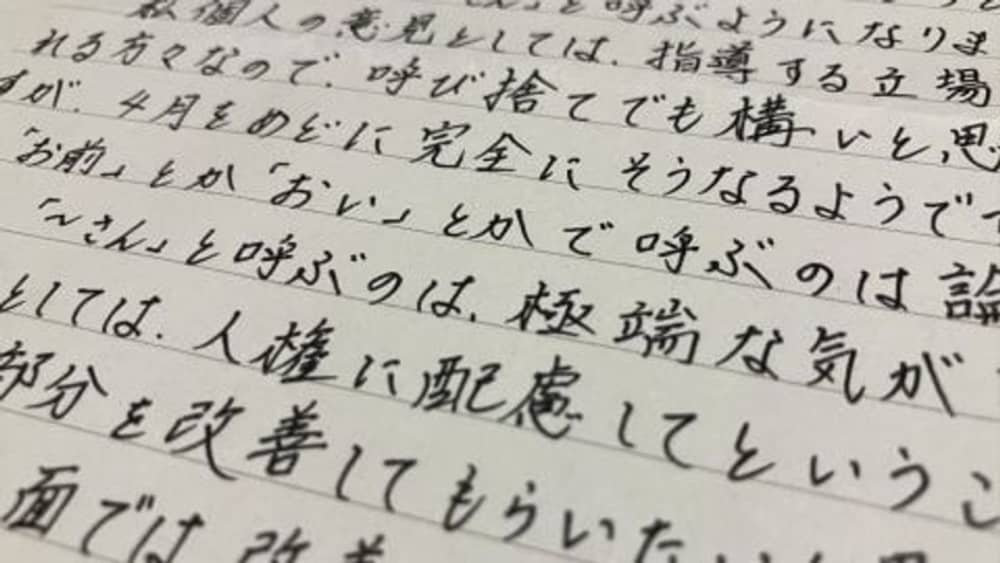 と呼ぶようになりま
私個人の意見としては、指導する立場
れる方々なので、呼び捨てでも構いと思
すが、4月をめどに完全にそうなるようで
「お前」とか「おい」とかで呼ぶのは論
「〜さん」と呼ぶのは、極端な気が
としては、人権に配慮してというこ
部分を改善してもらいたい
面では改善